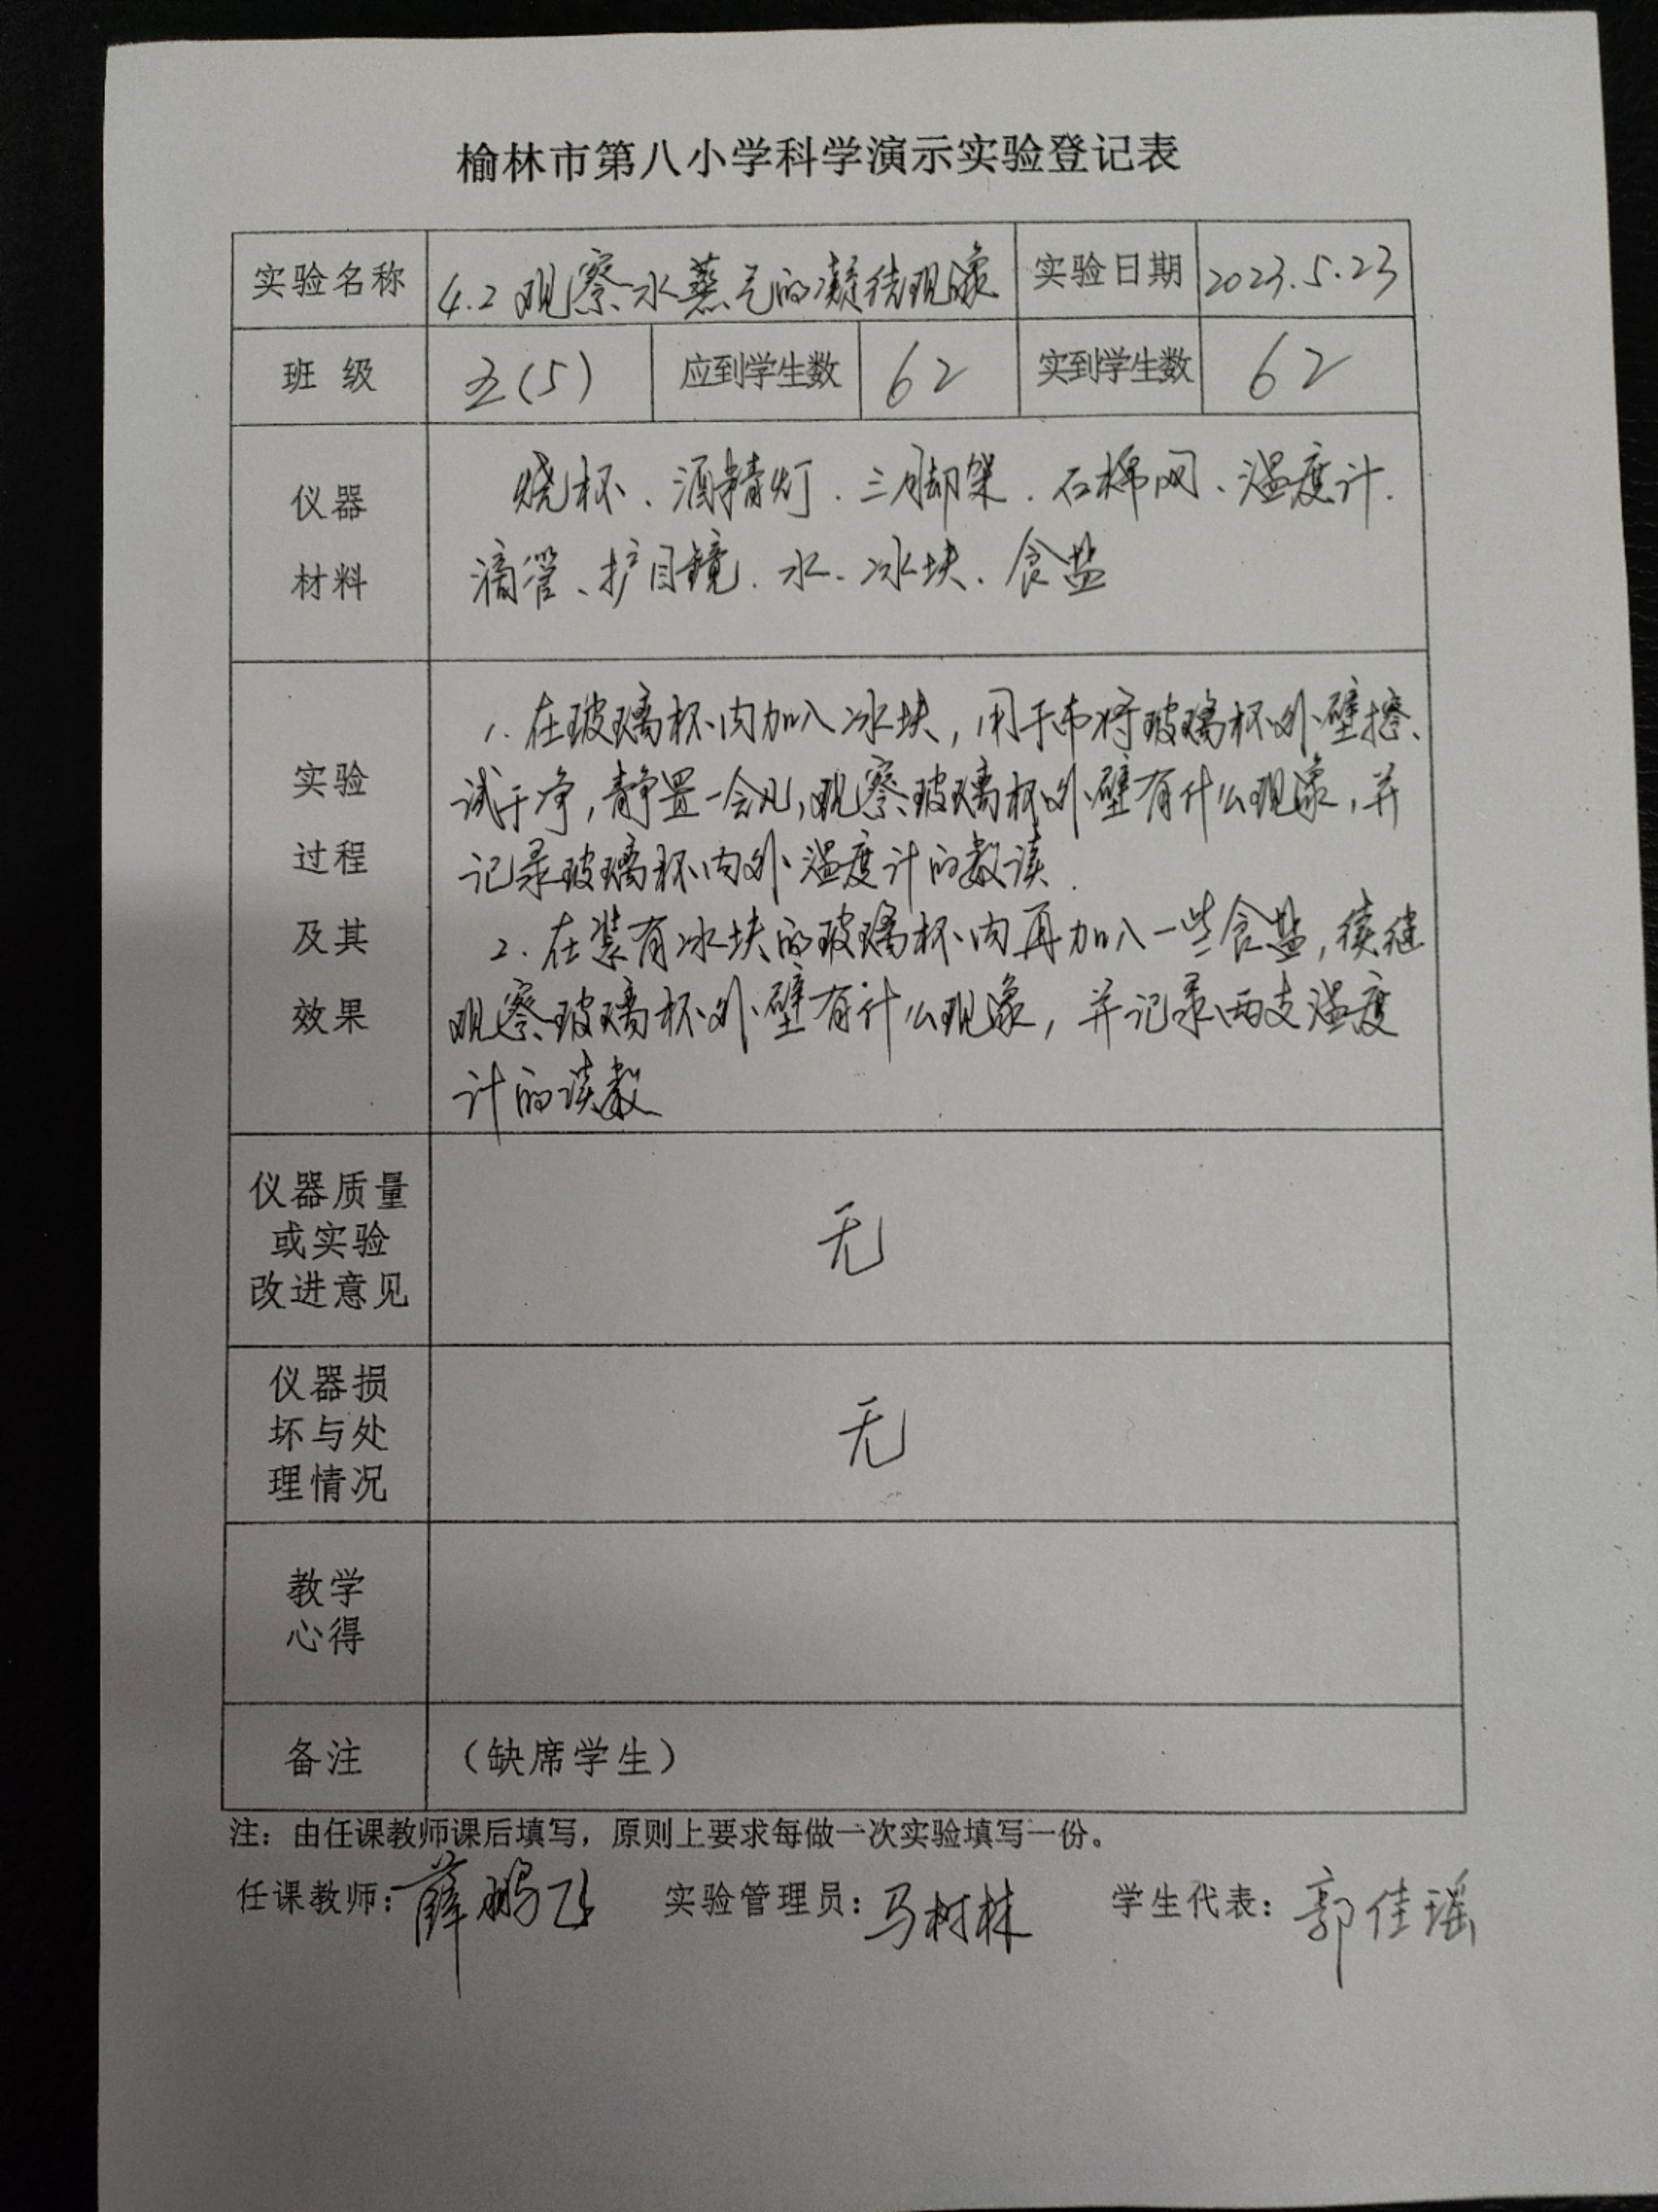 榆林市第八小学科学演示实验登记表
实验名称 4.2 观察水蒸气的凝结现象 实验日期 2023.5.23
班 级 五(5) 应到学生数 62 实到学生数 62
仪器
材料
烧杯、酒精灯、三脚架、石棉网、温度计、
滴管、护目镜、水、冰块、食盐
实验
过程
及其
效果
1. 在玻璃杯内加入冰块，用干布将玻璃杯外壁擦
试干净，静置一会儿，观察玻璃杯外壁有什么现象，并
记录玻璃杯内外温度计的数读.
2. 在装有冰块的玻璃杯内再加入一些食盐，续继
观察玻璃杯外壁有什么现象，并记录两支温度
计的读数
仪器质量
或实验
改进意见
无
仪器损
坏与处
理情况
无
教学
心得
备注 （缺席学生）
注：由任课教师课后填写，原则上要求每做一次实验填写一份。
任课教师：薛鹏飞 实验管理员：马树林 学生代表：郭佳瑶